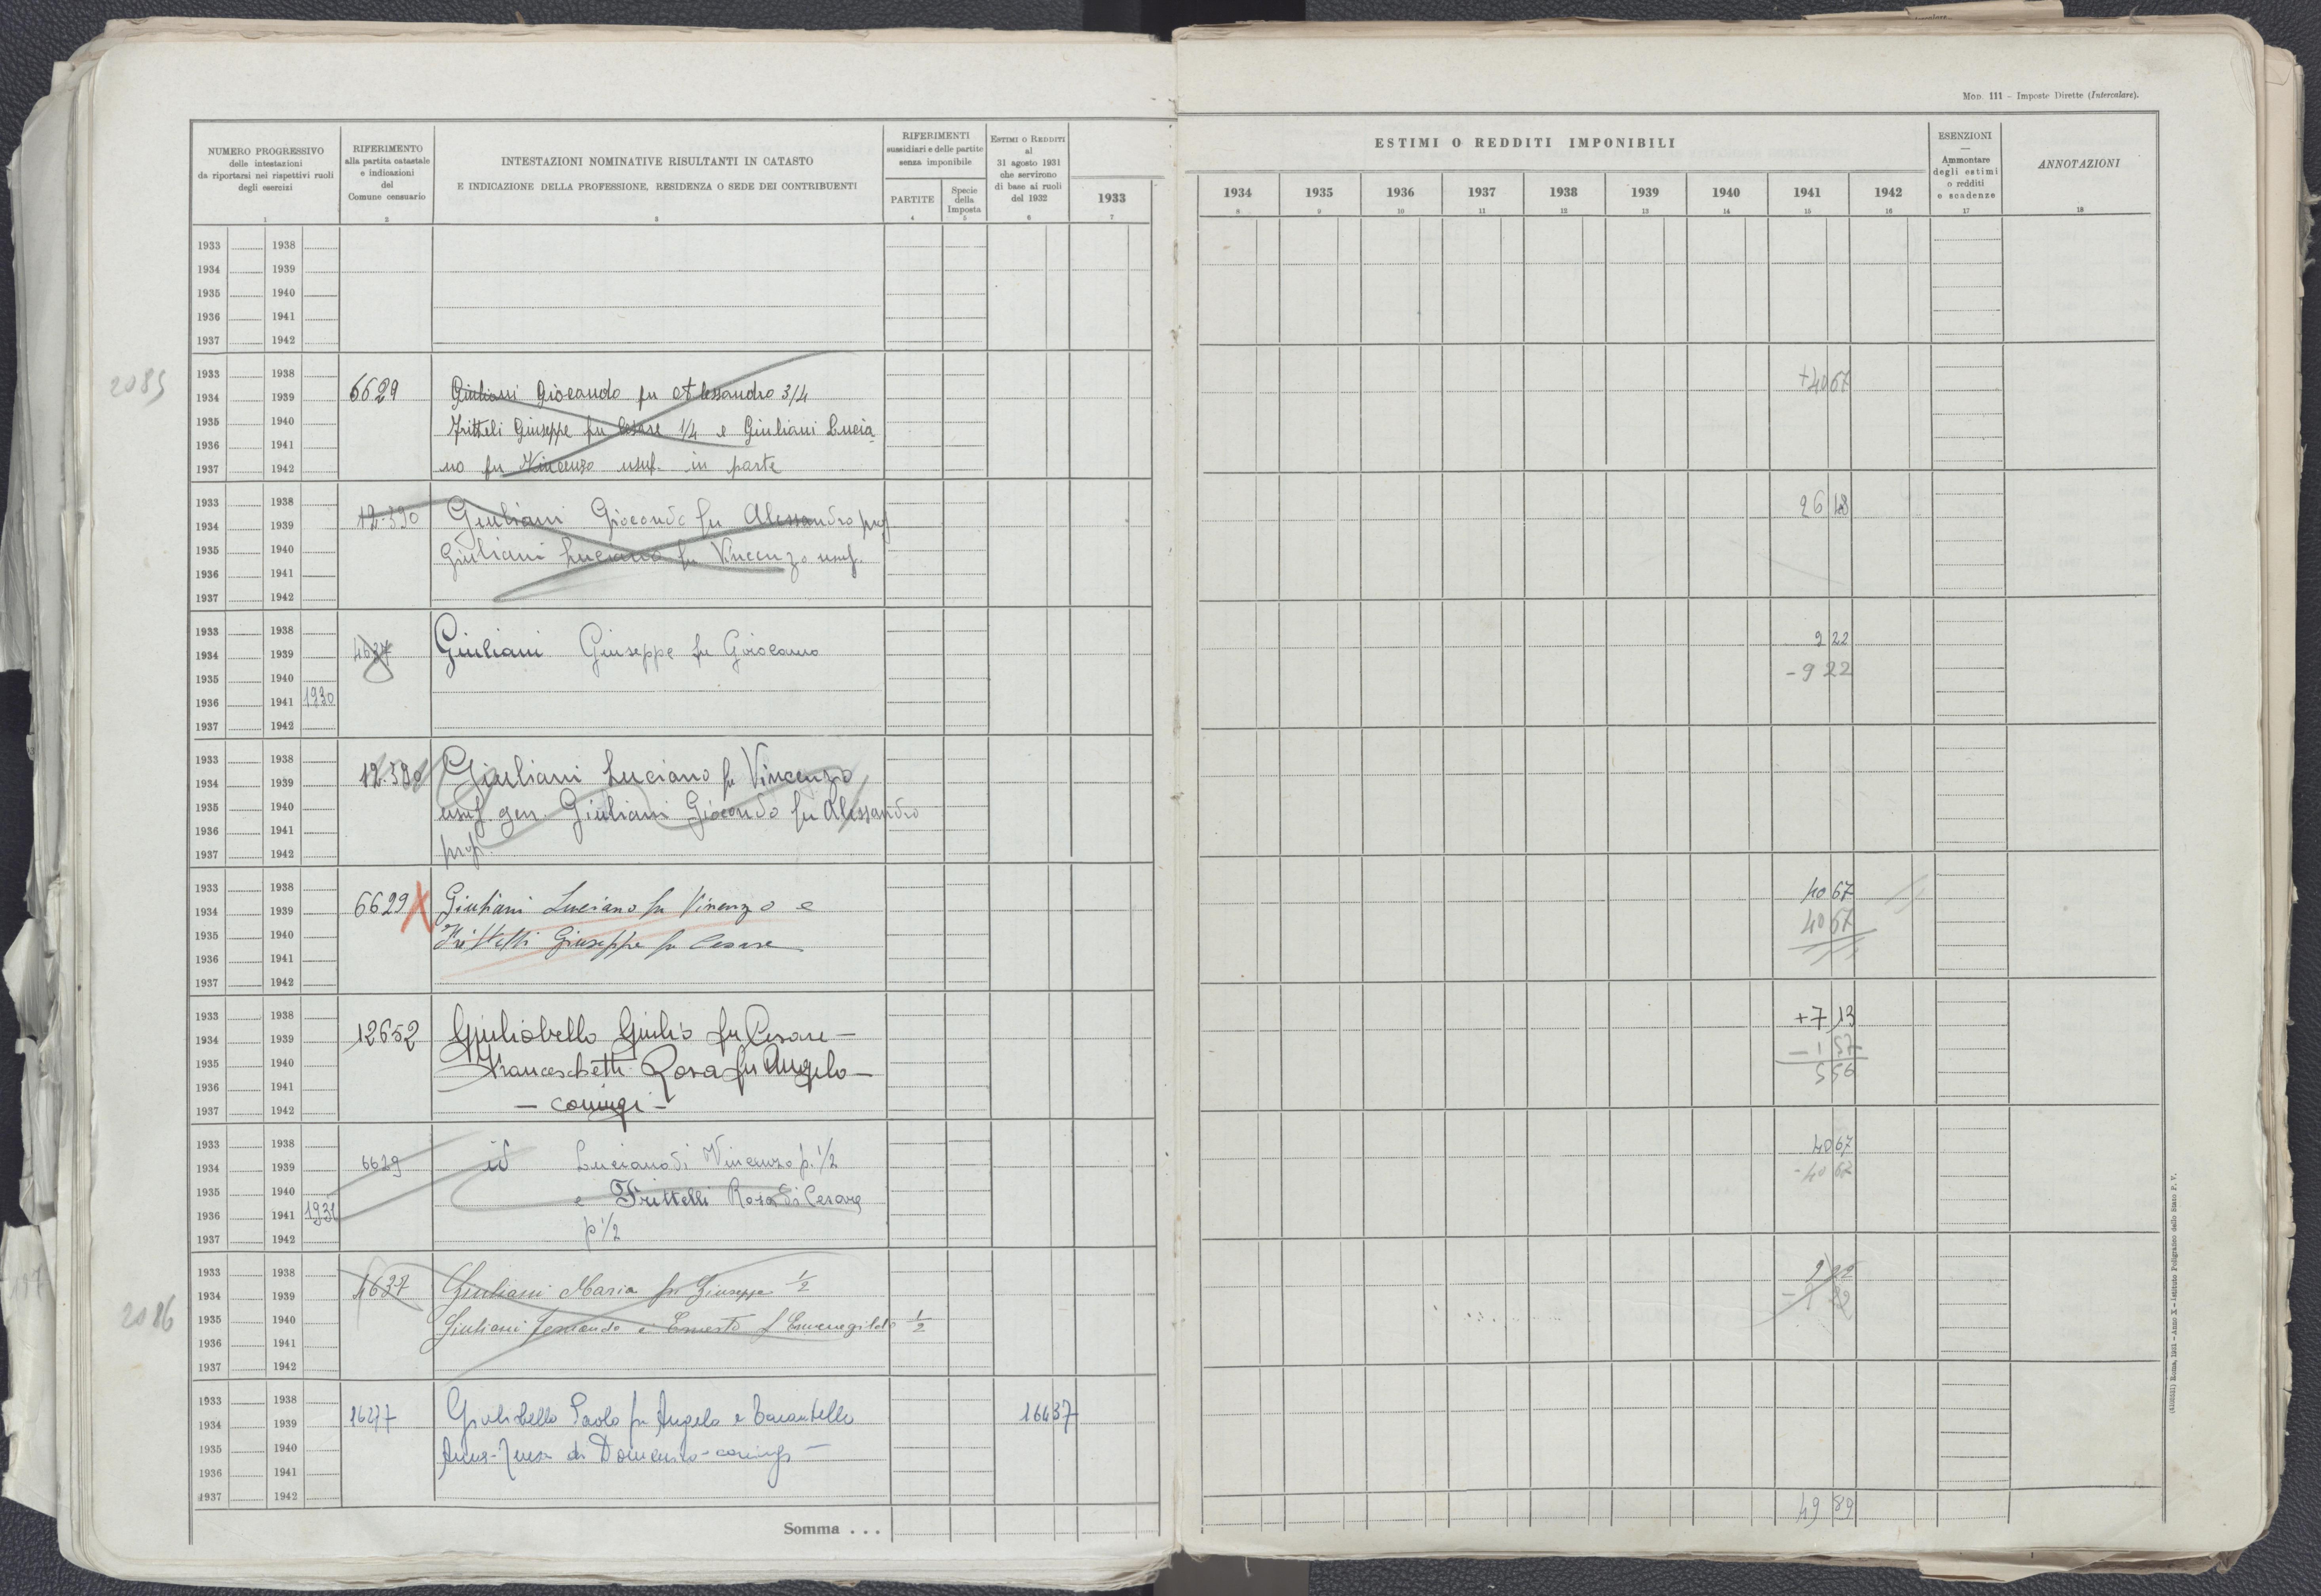 Mod. 111 - Imposte Dirette (Intercalare).
NUMERO PROGRESSIVO
delle intestazioni
da riportarsi nei rispettivi ruoli
degli esercizi
1
RIFERIMENTO
alla partita catastale
e indicazioni
del
Comune censuario
2
INTESTAZIONI NOMINATIVE RISULTANTI IN CATASTO
E INDICAZIONE DELLA PROFESSIONE, RESIDENZA O SEDE DEI CONTRIBUENTI
3
RIFERIMENTI
sussidiari e delle partite
senza imponibile
PARTITE
4
Specie
della
Imposta
5
ESTIMI O REDDITI
al
31 agosto 1931
che servirono
di base ai ruoli
del 1932
6
1933
7
ESTIMI O REDDITI IMPONIBILI
1934 1935 1936 1937 1938 1939 1940 1941 1942
8 9 10 11 12 13 14 15 16
ESENZIONI
—
Ammontare
degli estimi
o redditi
e scadenze
17
ANNOTAZIONI
18
1933 1938
1934 1939
1935 1940
1936 1941
1937 1942
2085
1933 1938 +4067
1934 1939 6629 Giuliani Giocondo fu Alessandro 3/4
1935 1940 Frittelli Giuseppe fu Cesare 1/4 e Giuliani Lucia
1936 1941
1937 1942 no fu Vincenzo usuf. in parte
1933 1938 26 18
1934 1939 12.390 Giuliani Giocondo fu Alessandro prop
1935 1940 Giuliani Luciano fu Vincenzo usuf.
1936 1941
1937 1942
1933 1938 9 22
1934 1939 4637 Giuliani Giuseppe fu Giocondo
1935 1940 - 9 22
1936 1941 1930
1937 1942
1933 1938
1934 1939 12.390 Giuliani Luciano fu Vincenzo
1935 1940 usuf. gen. Giuliani Giocondo fu Alessandro
1936 1941
1937 1942 prop.
1933 1938 40 67
1934 1939 6629 X Giuliani Luciano fu Vincenzo e
1935 1940 Frittelli Giuseppe fu Cesare 40 67
1936 1941
1937 1942
1933 1938 +7 13
1934 1939 12652 Giuliobello Giulio fu Cesare —
1935 1940 Franceschetti Rosa fu Angelo — — 1 57
1936 1941 5 56
1937 1942 — coniugi —
1933 1938 40 67
1934 1939 6629 id Luciano di Vincenzo p. 1/2
1935 1940 e Frittelli Rosa di Cesare - 40 67
1936 1941 1931
1937 1942 p 1/2
2086
1933 1938 9 22
1934 1939 4637 Giuliani Maria fu Giuseppe 1/2
1935 1940 Giuliani Fernando e Ernesto f Ermenegildo 1/2 - 9 22
1936 1941
1937 1942
1933 1938
1934 1939 Giulibello Paolo fu Angelo e 16437
1935 1940 di Domenico - coniugi —
1936 1941
1937 1942
Somma . . . 49 89
(4102651) Roma, 1931 - Anno X - Istituto Poligrafico dello Stato P. V.